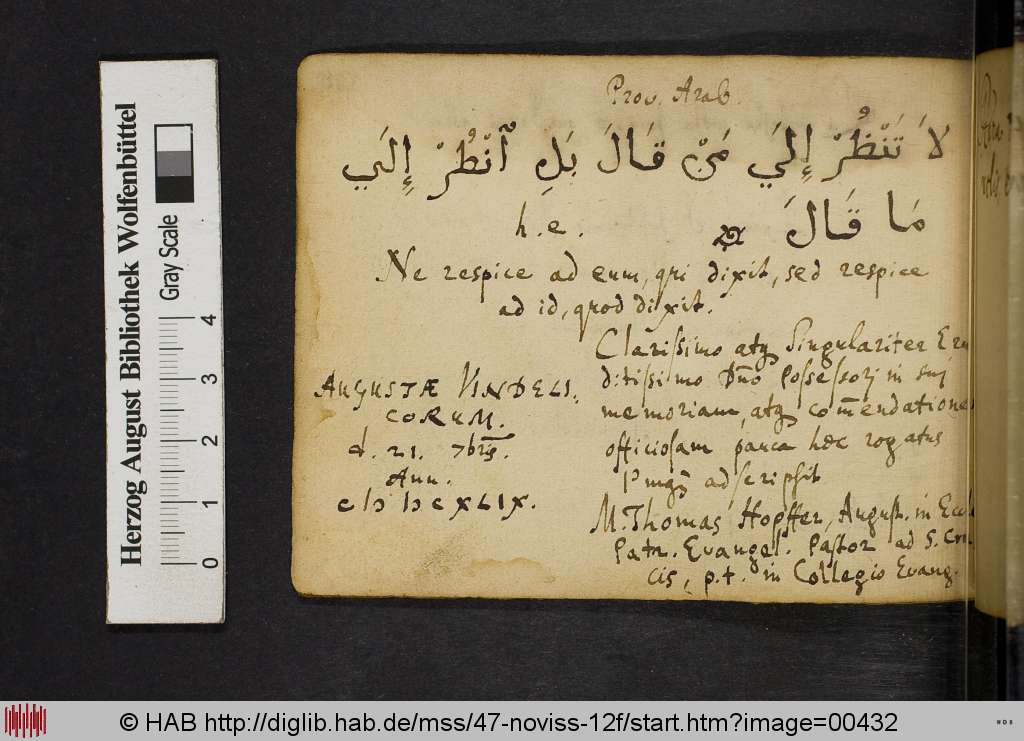 Prov. Arab.
لاَ تَنْظُرْ إِلَي مَنْ قَالَ بَلِ ٱنْظُرْ إِلَي
مَا قَالَ
h. e.
Ne respice ad eum, qui dixit, sed respice
ad id, quod dixit.
AUGUSTÆ VINDELI,
CORUM.
d. 21. 7bris.
Ann.
cIↃ IↃc XLIX.
Clarissimo atq₃ Singulariter Eru
ditissimo Dño Possessori in suj
memoriam, atq₃ com̃endatione
officiosam pauca hæc rogatus
adscripsit
M. Thomas Hopffer, August. in Eccl
Patr. Evangel. Pastor ad S. Cru
cis, p. t. in Collegio Evang.
Herzog August Bibliothek Wolfenbüttel
Gray Scale
0 1 2 3 4
© HAB http://diglib.hab.de/mss/47-noviss-12f/start.htm?image=00432